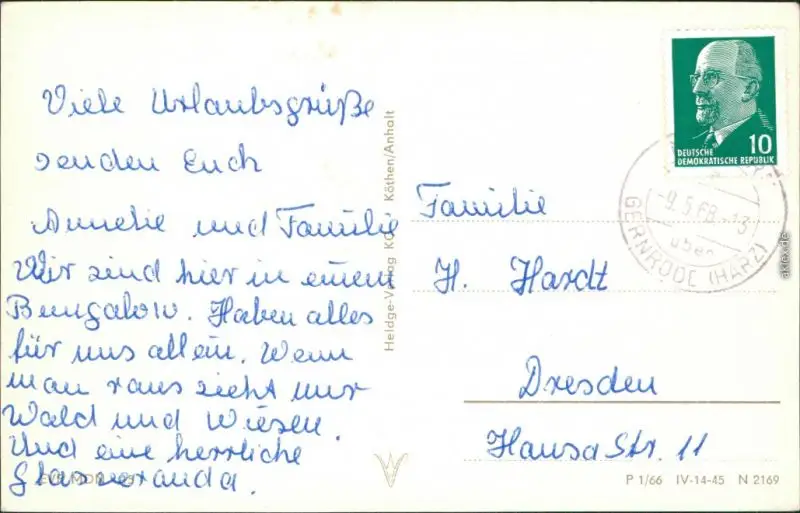 Viele Urlaubsgrüße
senden Euch
Annelie und Familie
Wir sind hier in einem
Bungalow. Haben alles
für uns allein. Wenn
man raus sieht nur
Wald und Wiesen.
Und eine herrliche
Glasveranda.
EVP MDN
Heldge-Verlag Köthen/Anhalt
DEUTSCHE
DEMOKRATISCHE REPUBLIK
10
-9.5.68.-13
über
GERNRODE (HARZ)
Familie
H. Hardt
Dresden
Hansa Str. 11
P 1/66 IV-14-45 N 2169
akpool.de